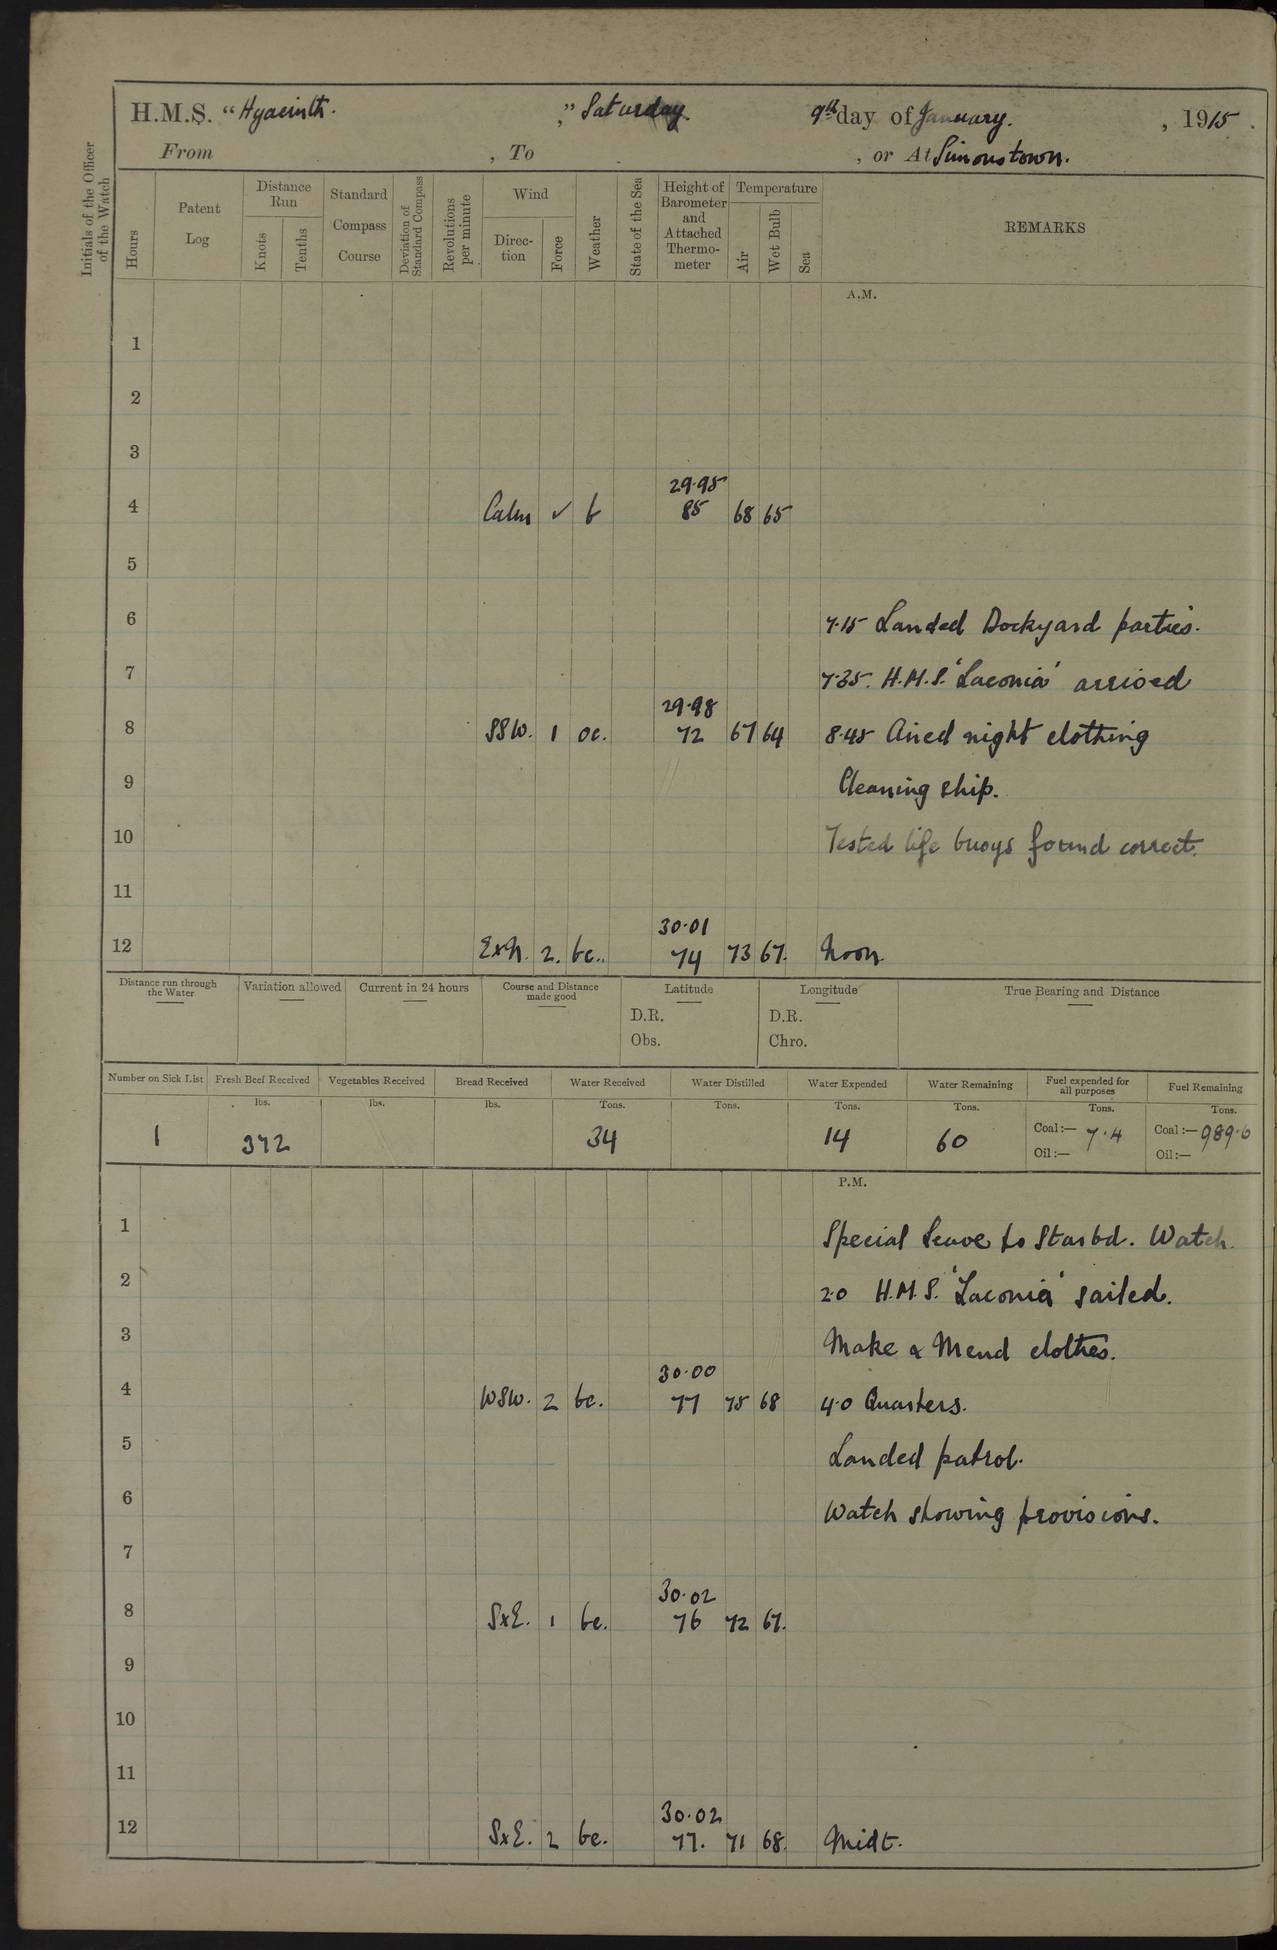 H.M.S. “Hyacinth. ,” Saturday 9th day of January. , 1915 .
From , To , or At Simonstown.
Initials of the Officer of the Watch
Hours
Patent Log
Distance Run
Knots
Tenths
Standard Compass Course
Deviation of Standard Compass
Revolutions per minute
Wind
Direc-tion
Force
Weather
State of the Sea
Height of Barometer and Attached Thermo-meter
Temperature
Air
Wet Bulb
Sea
REMARKS
A.M.
1
2
3
29.95
4 Calm ✓ b 85 68 65
5
6 7.15 Landed Dockyard parties.
7 7.35. H.M.S. 'Laconia' arrived
29.98
8 SSW. 1 oc. 72 67 64 8.45 Aired night clothing
9 Cleaning ship.
10 Tested life buoys found correct.
11
30.01
12 ExN. 2. bc.. 74 73 67. Noon
Distance run through the Water
Variation allowed
Current in 24 hours
Course and Distance made good
Latitude
D.R.
Obs.
Longitude
D.R.
Chro.
True Bearing and Distance
Number on Sick List Fresh Beef Received Vegetables Received Bread Received Water Received Water Distilled Water Expended Water Remaining Fuel expended for all purposes Fuel Remaining
lbs. lbs. lbs. Tons. Tons. Tons. Tons. Tons. Tons.
1 372 34 14 60 Coal:— 7.4 Coal:— 989.6
Oil:— Oil:—
P.M.
1 Special leave to Starbd. Watch.
2 2.0 H.M.S. 'Laconia' sailed.
3 Make & Mend clothes.
30.00
4 WSW. 2 bc. 77 75 68 4.0 Quarters.
5 Landed patrol.
6 Watch stowing provisions.
7
30.02
8 SxE. 1 bc. 76 72 67.
9
10
11
30.02
12 SxE. 2 bc. 77. 71 68. Midt.